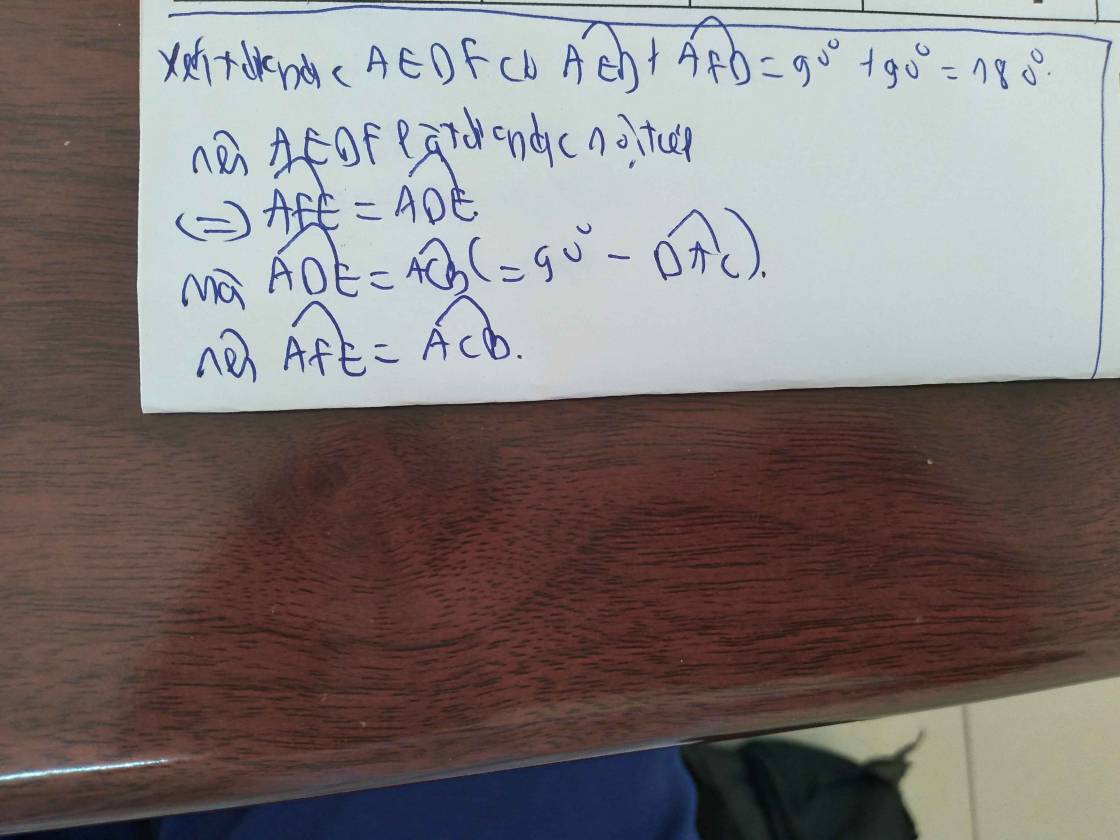 Xét tứ giác AEDF có AED + AFD = 90° + 90° = 180°.
nên AEDF là tứ giác nội tiếp
(=) AFE = ADE.
Mà ADE = ACB (= 90° - DAC).
nên AFE = ACB.